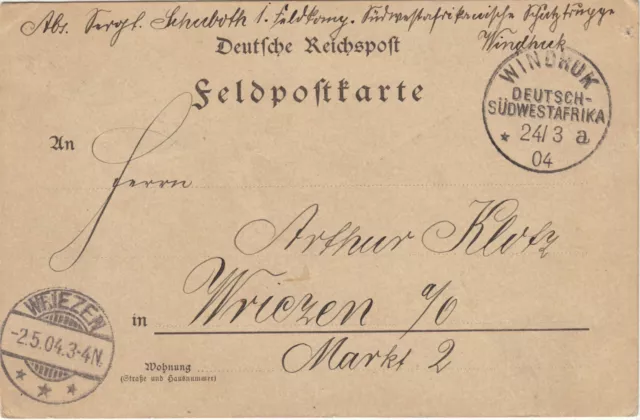 Abs. Sergt. Schuboth 1. Feldkomp. Südwestafrikanische Schutztruppe
Windhuk
Deutsche Reichspost
Feldpostkarte
WINDHUK
DEUTSCH-
SÜDWESTAFRIKA
* 24/3 a
04
An
Herrn
Arthur Klotz
in Wriezen a/o
Markt 2
WRIEZEN
-2.5.04.3-4N.
* * *
Wohnung
(Straße und Hausnummer)